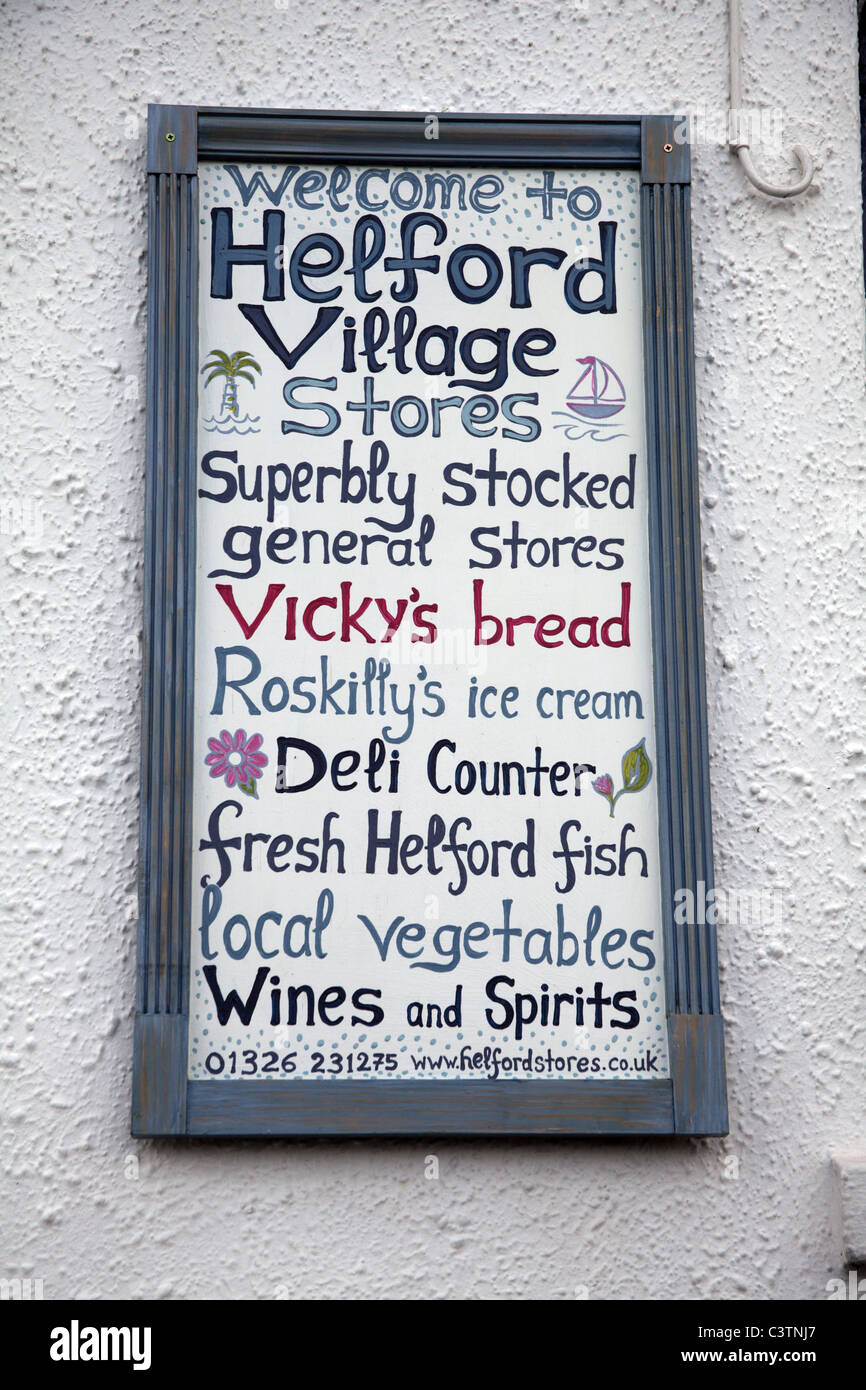 Welcome to
Helford
Village
Stores
Superbly stocked
general stores
Vicky's bread
Roskilly's ice cream
Deli Counter
fresh Helford fish
local vegetables
Wines and Spirits
01326 231275 www.helfordstores.co.uk
alamy
Image ID: C3TNJ7
www.alamy.com